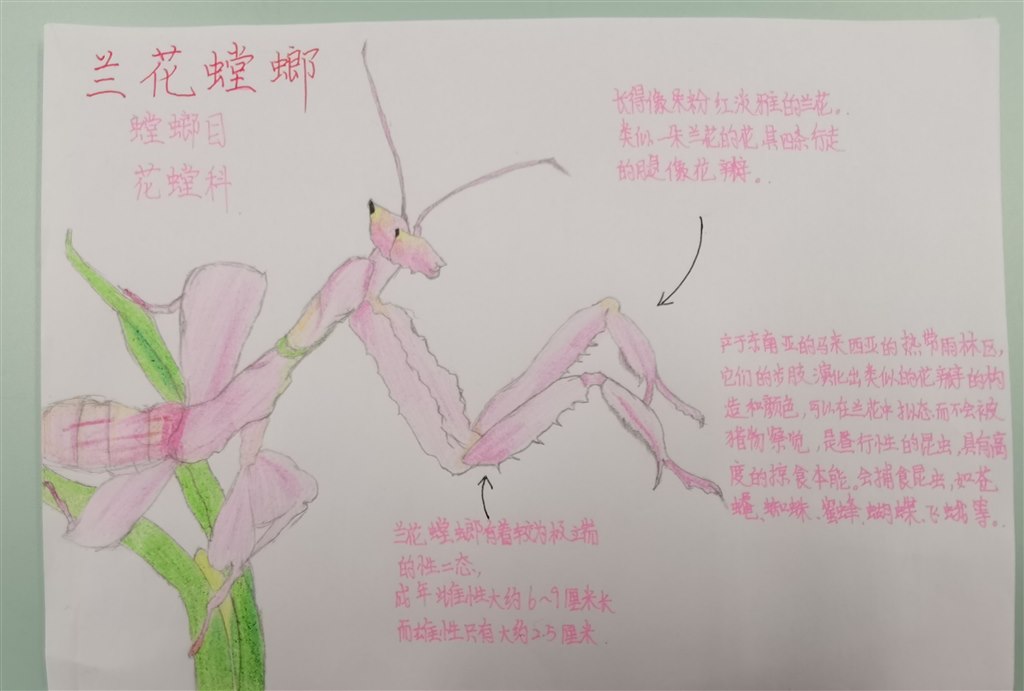 兰花螳螂
螳螂目
花螳科
长得像朵粉红淡雅的兰花。
类似一朵兰花的花,具四条行走
的腿像花瓣。
产于东南亚的马来西亚的热带雨林区,
它们的步肢演化出类似的花瓣的构
造和颜色,可以在兰花中拟态而不会被
猎物察觉,是昼行性的昆虫,具有高
度的掠食本能。会捕食昆虫,如苍
蝇、蜘蛛、蜜蜂、蝴蝶、飞蛾等。
兰花螳螂有着较为极端
的性二态,
成年雌性大约6~9厘米长
而雄性只有大约2.5厘米